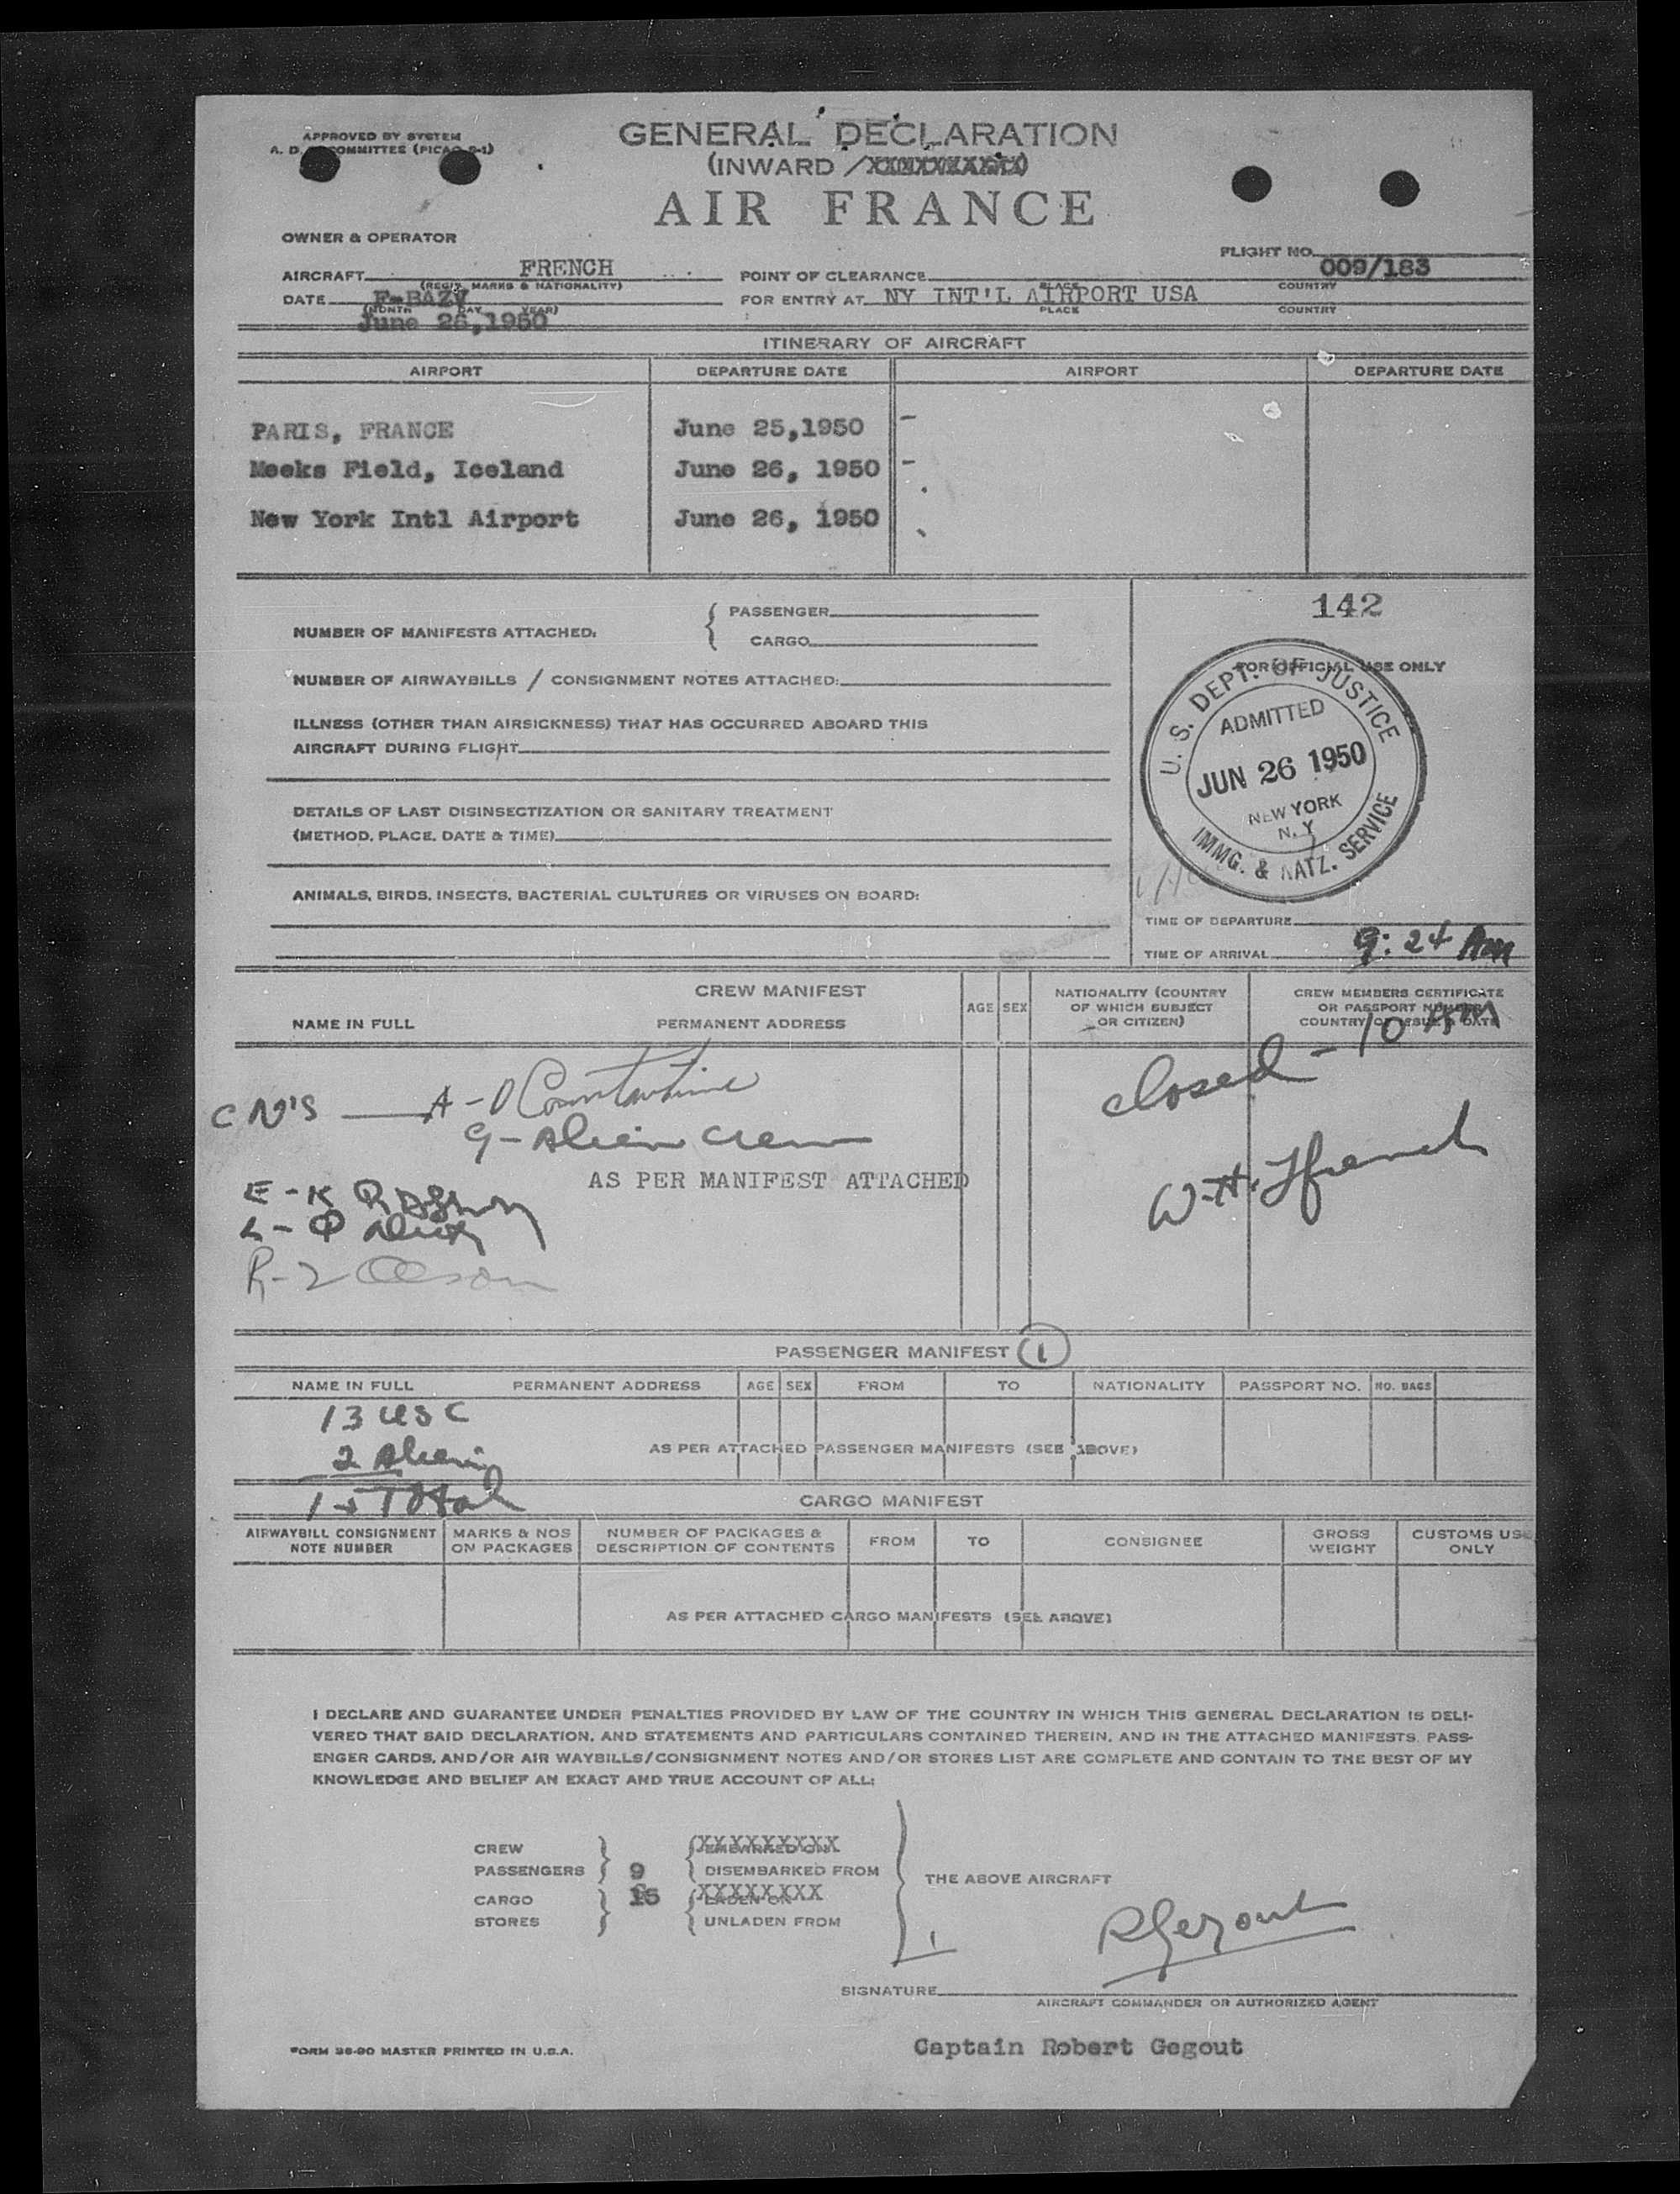 APPROVED BY SYSTEM
A. D. COMMITTEE (PICAO
GENERAL DECLARATION
(INWARD /XXXXXXXXXX)
AIR FRANCE
OWNER & OPERATOR
FLIGHT NO. 009/183
AIRCRAFT FRENCH POINT OF CLEARANCE
(REGIS. MARKS & NATIONALITY) PLACE COUNTRY
DATE F-BAZV FOR ENTRY AT NY INT'L AIRPORT USA
(MONTH DAY YEAR) PLACE COUNTRY
June 26,1950
ITINERARY OF AIRCRAFT
AIRPORT DEPARTURE DATE AIRPORT DEPARTURE DATE
PARIS, FRANCE June 25,1950
Meeks Field, Iceland June 26, 1950
New York Intl Airport June 26, 1950
142
NUMBER OF MANIFESTS ATTACHED: PASSENGER
CARGO
FOR OFFICIAL USE ONLY
U. S. DEPT. OF JUSTICE
ADMITTED
JUN 26 1950
NEW YORK
N. Y.
IMMG. & NATZ. SERVICE
NUMBER OF AIRWAYBILLS / CONSIGNMENT NOTES ATTACHED:
ILLNESS (OTHER THAN AIRSICKNESS) THAT HAS OCCURRED ABOARD THIS
AIRCRAFT DURING FLIGHT
DETAILS OF LAST DISINSECTIZATION OR SANITARY TREATMENT
(METHOD, PLACE, DATE & TIME)
ANIMALS, BIRDS, INSECTS, BACTERIAL CULTURES OR VIRUSES ON BOARD:
TIME OF DEPARTURE
TIME OF ARRIVAL 9:24 Am
CREW MANIFEST
NAME IN FULL PERMANENT ADDRESS AGE SEX NATIONALITY (COUNTRY
OF WHICH SUBJECT
OR CITIZEN)
CREW MEMBERS CERTIFICATE
OR PASSPORT NUMBER
COUNTRY OF ISSUE & DATE
closed - 10 AM
CN'S A-O Constantine
9 - Alien Crew
AS PER MANIFEST ATTACHED
W. H. French
E - K
R-2 Olson
PASSENGER MANIFEST 1
NAME IN FULL PERMANENT ADDRESS AGE SEX FROM TO NATIONALITY PASSPORT NO. NO. BAGS
13 USC
2 Alien
AS PER ATTACHED PASSENGER MANIFESTS (SEE ABOVE)
15 Total
CARGO MANIFEST
AIRWAYBILL CONSIGNMENT
NOTE NUMBER
MARKS & NOS
ON PACKAGES
NUMBER OF PACKAGES &
DESCRIPTION OF CONTENTS
FROM TO CONSIGNEE
GROSS
WEIGHT
CUSTOMS USE
ONLY
AS PER ATTACHED CARGO MANIFESTS (SEE ABOVE)
I DECLARE AND GUARANTEE UNDER PENALTIES PROVIDED BY LAW OF THE COUNTRY IN WHICH THIS GENERAL DECLARATION IS DELI-
VERED THAT SAID DECLARATION, AND STATEMENTS AND PARTICULARS CONTAINED THEREIN, AND IN THE ATTACHED MANIFESTS, PASS-
ENGER CARDS, AND/OR AIR WAYBILLS/CONSIGNMENT NOTES AND/OR STORES LIST ARE COMPLETE AND CONTAIN TO THE BEST OF MY
KNOWLEDGE AND BELIEF AN EXACT AND TRUE ACCOUNT OF ALL:
CREW XXXXXXXXX
PASSENGERS 9 DISEMBARKED FROM
THE ABOVE AIRCRAFT
CARGO 15 XXXXXXXX
STORES UNLADEN FROM
RGegout
SIGNATURE
AIRCRAFT COMMANDER OR AUTHORIZED AGENT
Captain Robert Gegout
FORM 36-90 MASTER PRINTED IN U.S.A.